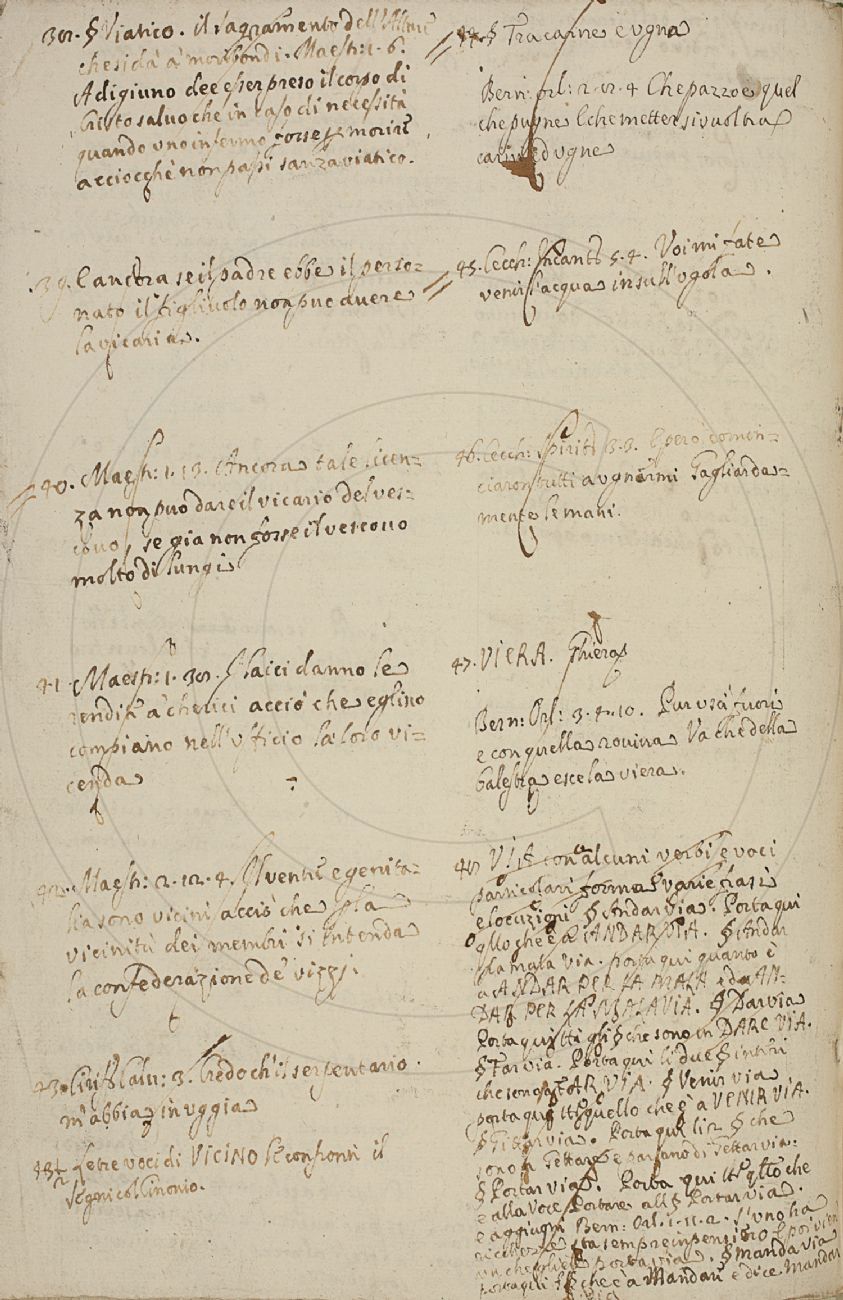 38. § Viatico. il sagramento dell'Altare
che si dà a' moribondi. Maestr: 1. 6.
A digiuno dee esser preso il corpo di
Cristo salvo che in caso di necessità
quando uno infermo fosse per morire
acciocchè non passi sanza viatico.
39. E ancora se il padre ebbe il perso=
nato il figliuolo non può avere
la vicaria.
40. Maestr: 1. 13. Ancora tale licen=
za non può dare il vicario del ves=
covo, se gia non fosse il vescovo
molto di lungi
41. Maestr: 1. 30. I laici danno le
rendite a' cherici acciò che eglino
compiano nell'ufficio la loro vi=
cenda
42. Maestr: 2. 12. 4. Il ventre e genita=
lia sono vicini acciò che per la
vicinità dei membri s'intenda
la confederazione de' vizzj.
43. Credo ch'il serpentario
m'abbia in uggia
Le tre voci di VICINO le confronti il
Segr.
44. § Tra carne e ugna
Bern: Orl: 2. 12. 4 Che pazzo è quel
che pugne e che metter si vuol tra
carne ed ugne
45. Cecch: Incant: 5. 4. Voi mi fate
venir l'acqua in sull'ugola.
46. Cecch: Spirit: 3. 3. E però comin=
ciaron tutti a ugnermi gagliarda=
mente le mani.
47. VIERA. Ghiera
Bern: Orl: 3. 4. 10. Pur uscì fuori
e con quella rovina Va che della
balestra esce la viera.
48. VIA con alcuni verbi e voci
particolari forma varie frasi
e locuzioni § Andar via. Porta qui
qllo che è a ANDAR VIA. § Andar
p la mala via. porta qui quanto è
a ANDAR PER LA MALA e da AN=
DAR PER LA MALA VIA. § Dar via
Porta qui tti gli § che sono in DARE VIA.
§ Far via. Porta qui li due § interi
che sono a FAR VIA. § Venir via
porta qui tt° quello che è a VENIR VIA.
§ Gittar via. Porta qui li 2 § che
sono a Gettare e parlano di Gettar via.
§ Portar via. Porta qui tt° qllo che
è alla voce Portare all § Portar via.
e aggiugni Bern: Orl. 1. 11. 2. S'uno ha
sta sempre in pensiero E poi vien
un che porta via. § Manda via
porta qui che è a Mandare e dice Mandar
via